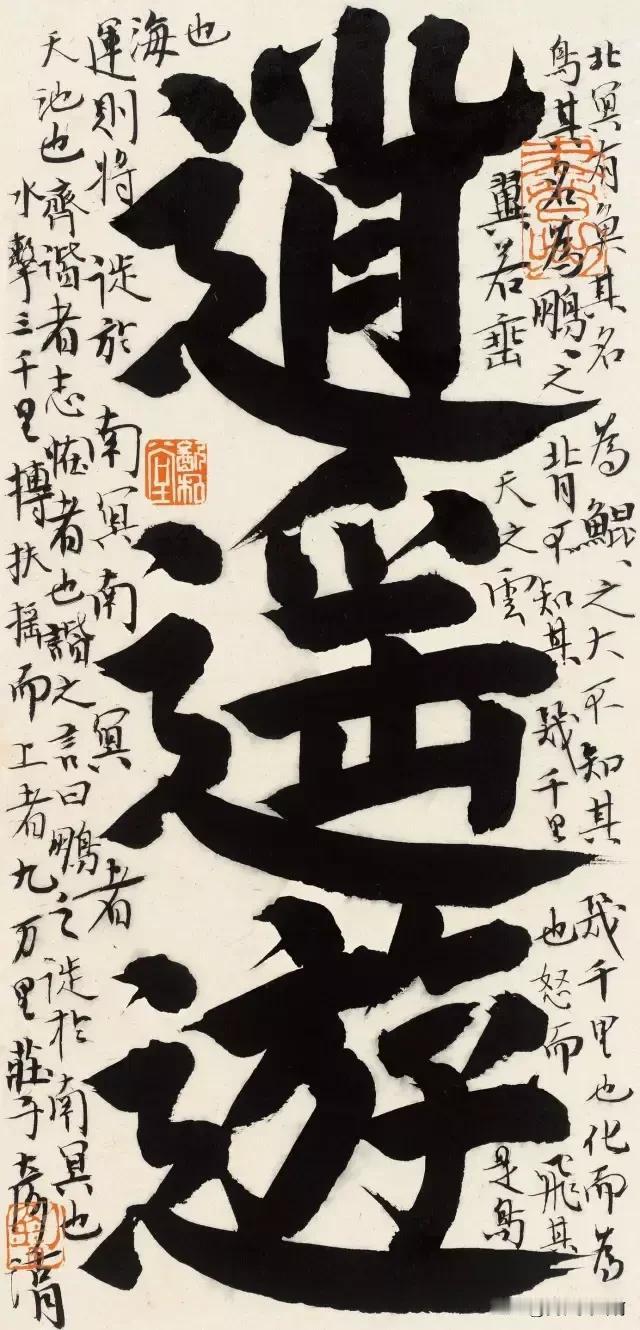 逍遙遊
北冥有魚其名為鯤、之大不知其幾千里也化而為
鳥其名為鵬、之背不知其幾千里也怒而飛其
翼若垂天之雲是鳥
也
海
運則將徙於南冥南冥者
天池也齊諧者志怪者也諧之言曰鵬之徙於南冥也
水擊三千里摶扶摇而上者九万里莊子